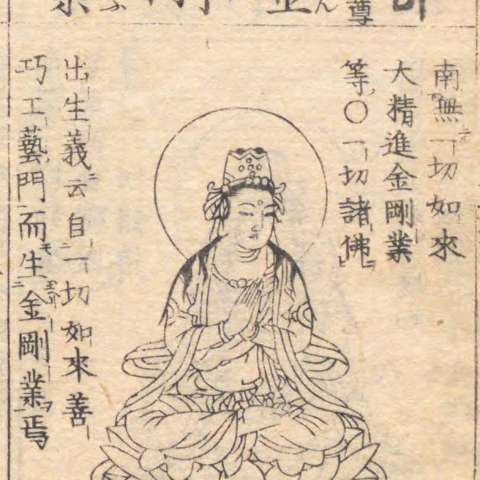 尊
南無一切如來
大精進金剛業
等〇一切諸佛
出生義云自一切如來善
巧工藝門而生金剛業焉